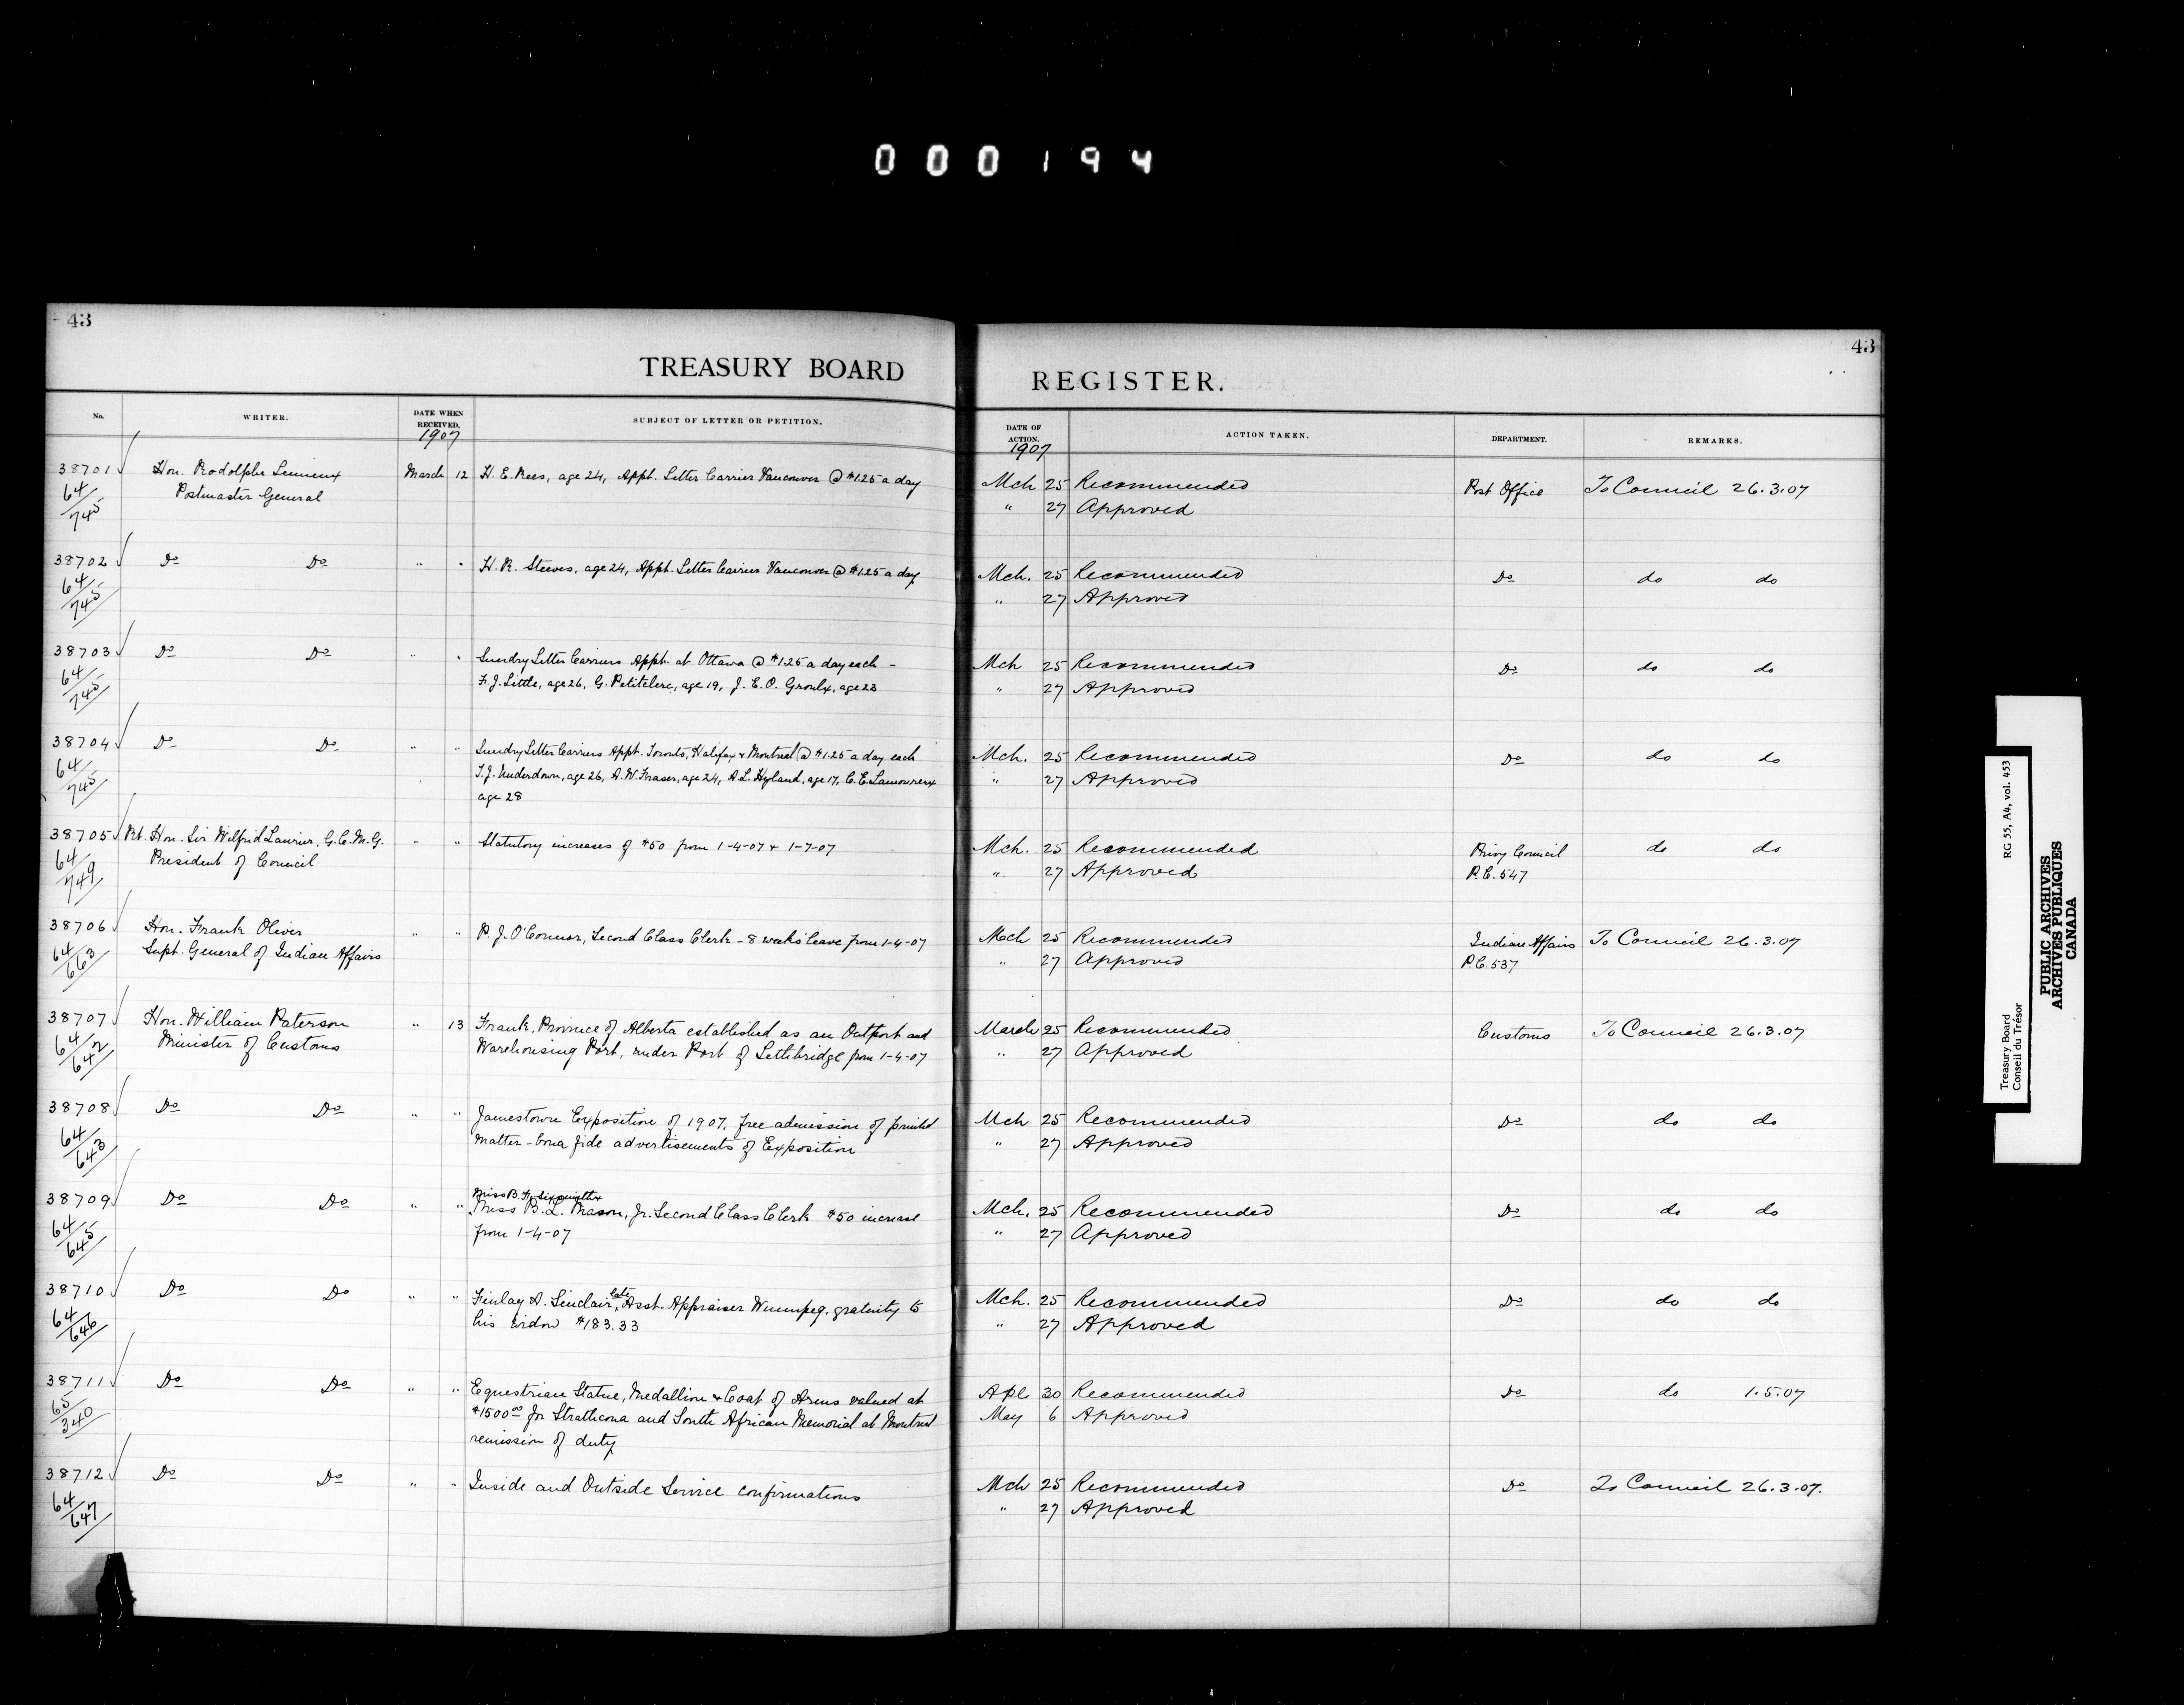 000194
43
43
TREASURY BOARD REGISTER.
No. WRITER. DATE WHEN RECEIVED. SUBJECT OF LETTER OR PETITION. DATE OF ACTION. ACTION TAKEN. DEPARTMENT. REMARKS.
1907 1907
38701 Hon. Rodolphe Lemieux March 12 H. E. Rees, age 24, Appt. Letter Carrier Vancouver @ $1.25 a day Mch 25 Recommended Post Office To Council 26.3.07
64/745 Postmaster General " 27 Approved
38702 Do Do " " H. R. Steeves, age 24, Appt. Letter Carrier Vancouver @ $1.25 a day Mch. 25 Recommended Do do do
64/745 " 27 Approved
38703 Do Do " " Sundry Letter Carriers Appt. at Ottawa @ $1.25 a day each - Mch 25 Recommended Do do do
64/745 F. J. Little, age 26, G. Petitclerc, age 19, J. E. O. Groulx, age 23 " 27 Approved
38704 Do Do " " Sundry Letter Carriers Appt. Toronto, Halifax & Montreal @ $1.25 a day each Mch. 25 Recommended Do do do
64/745 T. J. Underdown, age 26, A. W. Fraser, age 24, A. L. Hyland, age 17, C. E. Lamoureux " 27 Approved
age 28
38705 Rt. Hon. Sir Wilfrid Laurier, G.C.M.G. " " Statutory increases of $50 from 1-4-07 & 1-7-07 Mch. 25 Recommended Privy Council do do
64/749 President of Council " 27 Approved P.C. 547
38706 Hon. Frank Oliver " " P. J. O'Connor, Second Class Clerk - 8 weeks' leave from 1-4-07 Mch 25 Recommended Indian Affairs To Council 26.3.07
64/663 Supt. General of Indian Affairs " 27 Approved P.C. 537
38707 Hon. William Paterson " 13 Frank, Province of Alberta established as an Outport and March 25 Recommended Customs To Council 26.3.07
64/642 Minister of Customs Warehousing Port, under Port of Lethbridge from 1-4-07 " 27 Approved
38708 Do Do " " Jamestown Exposition of 1907, free admission of printed Mch 25 Recommended Do do do
64/643 matter - bona fide advertisements of Exposition " 27 Approved
Miss B. H.
38709 Do Do " " Miss B. L. Mason, Jr. Second Class Clerk $50 increase Mch. 25 Recommended Do do do
64/645 from 1-4-07 " 27 Approved
38710 Do Do " " Finlay A. Sinclair, late Asst. Appraiser Winnipeg, gratuity to Mch. 25 Recommended Do do do
64/646 his widow $183.33 " 27 Approved
38711 Do Do " " Equestrian Statue, Medallion & Coat of Arms valued at Apl 30 Recommended Do do 1.5.07
65/340 $1500.00 for Strathcona and South African Memorial at Montreal May 6 Approved
remission of duty
38712 Do Do " " Inside and Outside Service confirmations Mch 25 Recommended Do To Council 26.3.07.
64/647 " 27 Approved
Treasury Board RG 55, A4, vol. 453
Conseil du Trésor
PUBLIC ARCHIVES
ARCHIVES PUBLIQUES
CANADA